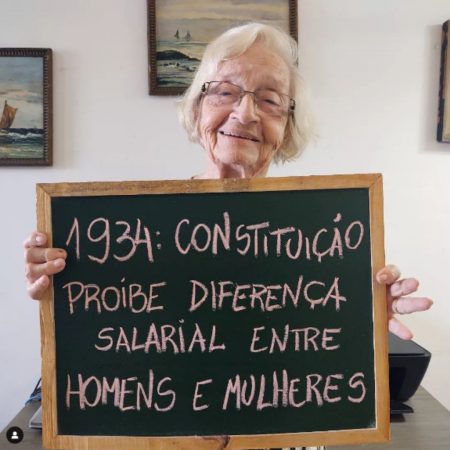 1934: CONSTITUIÇÃO
PROÍBE DIFERENÇA
SALARIAL ENTRE
HOMENS E MULHERES